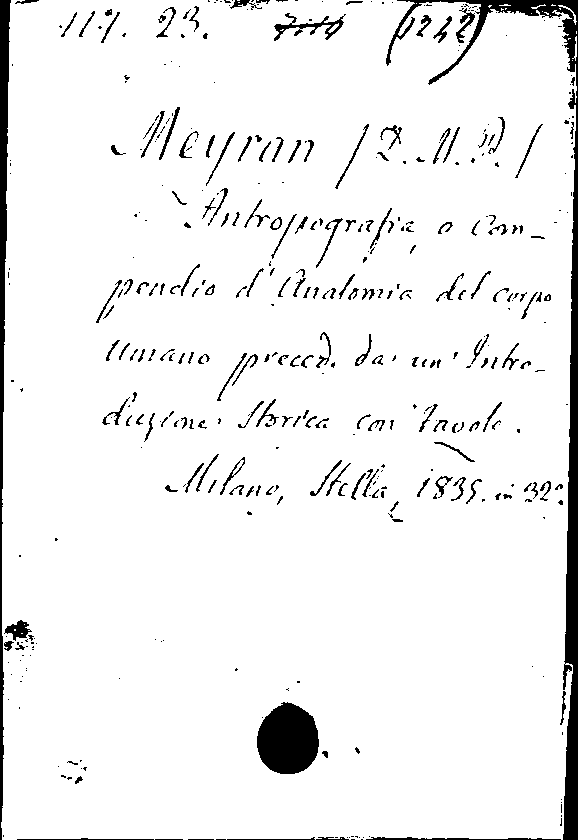 117. 23. (1242)
Meyran / D. M. P. /
Antropografia, o Com-
pendio d'Anatomia del corpo
umano preced. da un' Intro-
duzione Storica con tavole.
Milano, Stella, 1835. in 32º